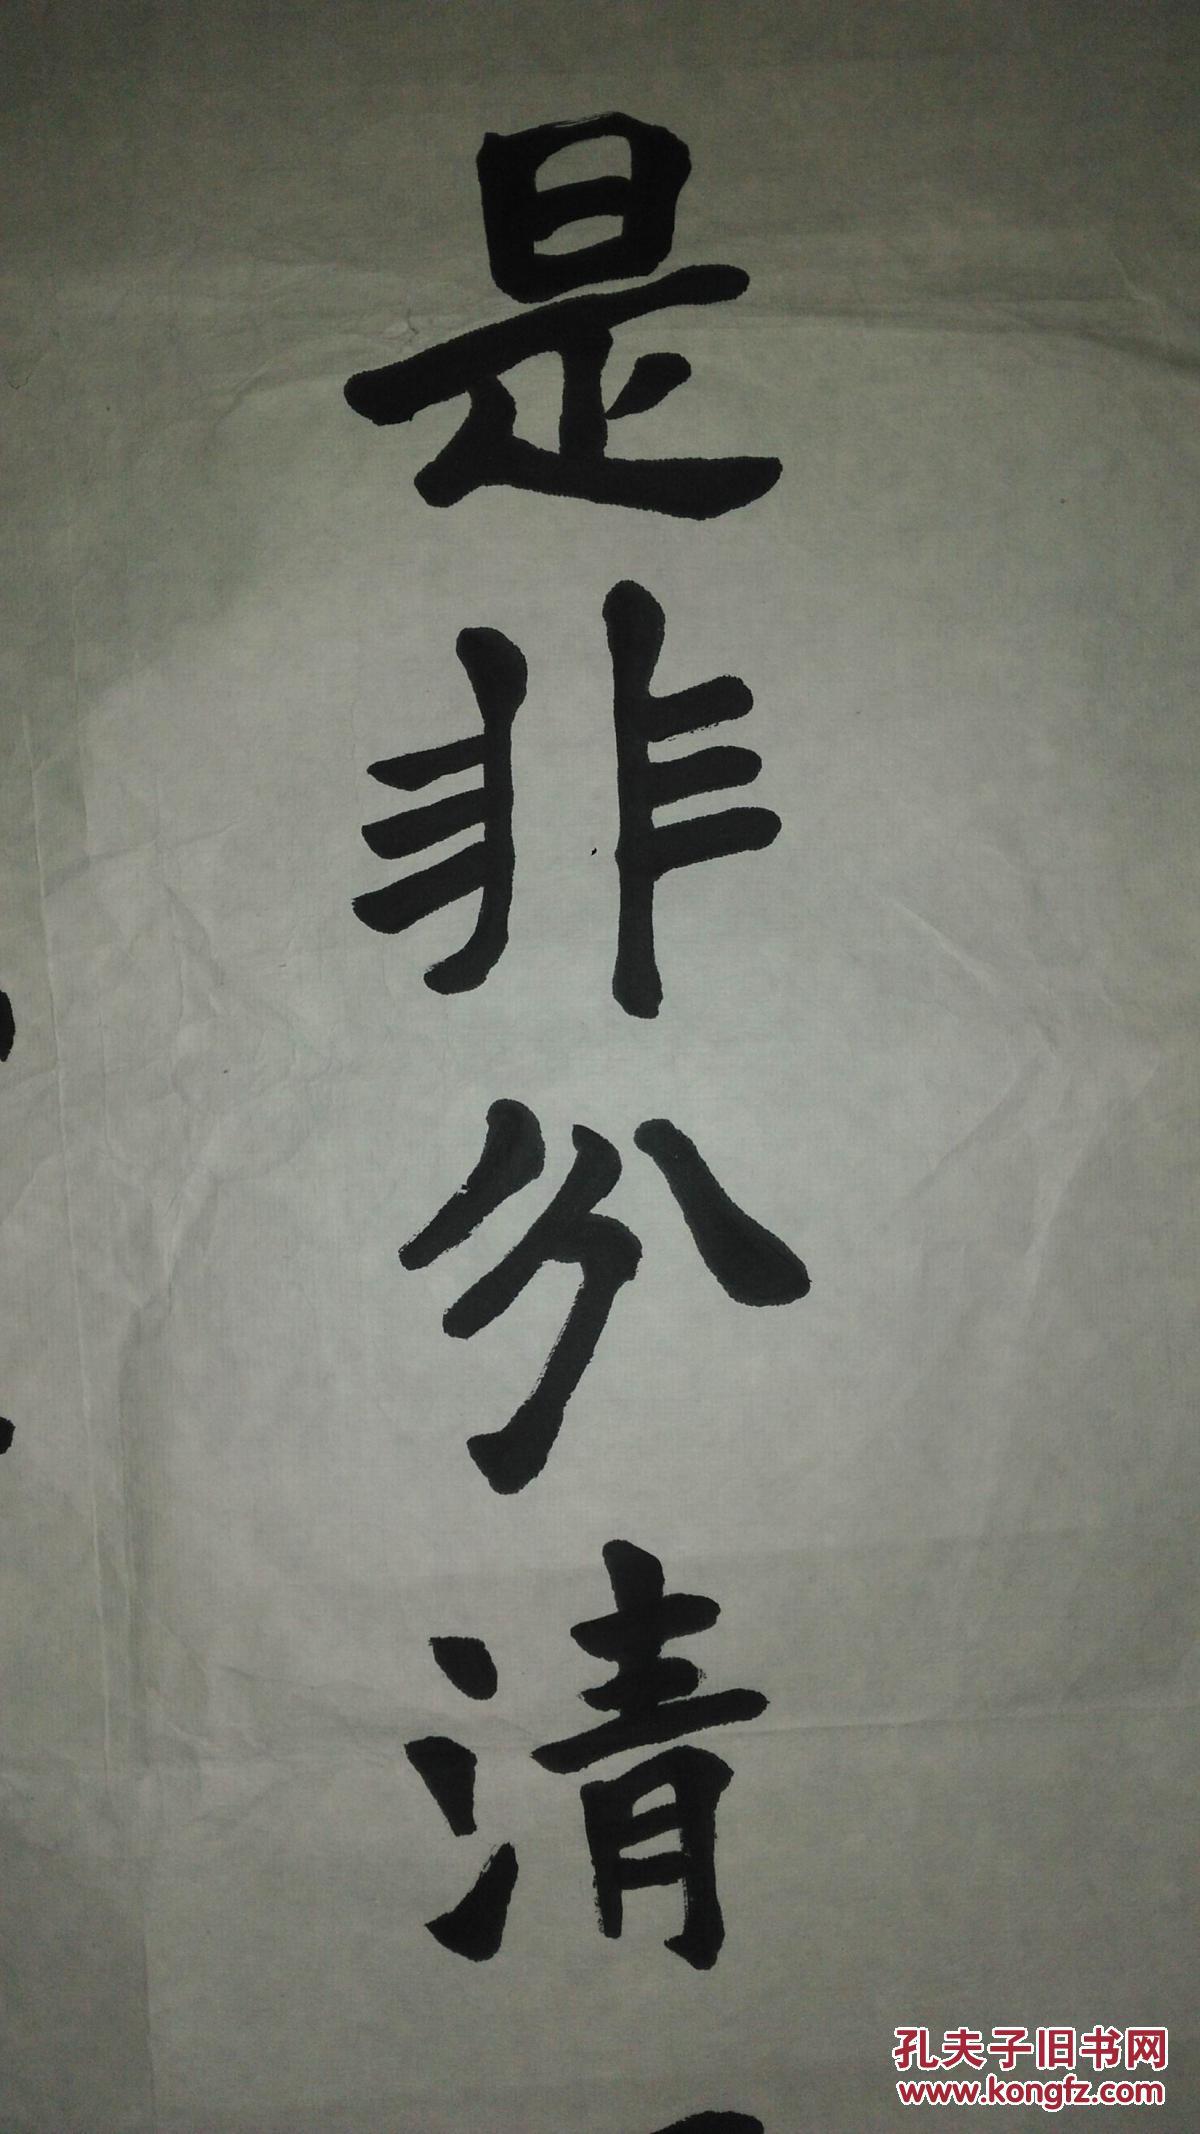 是非分清
孔夫子旧书网
www.kongfz.com